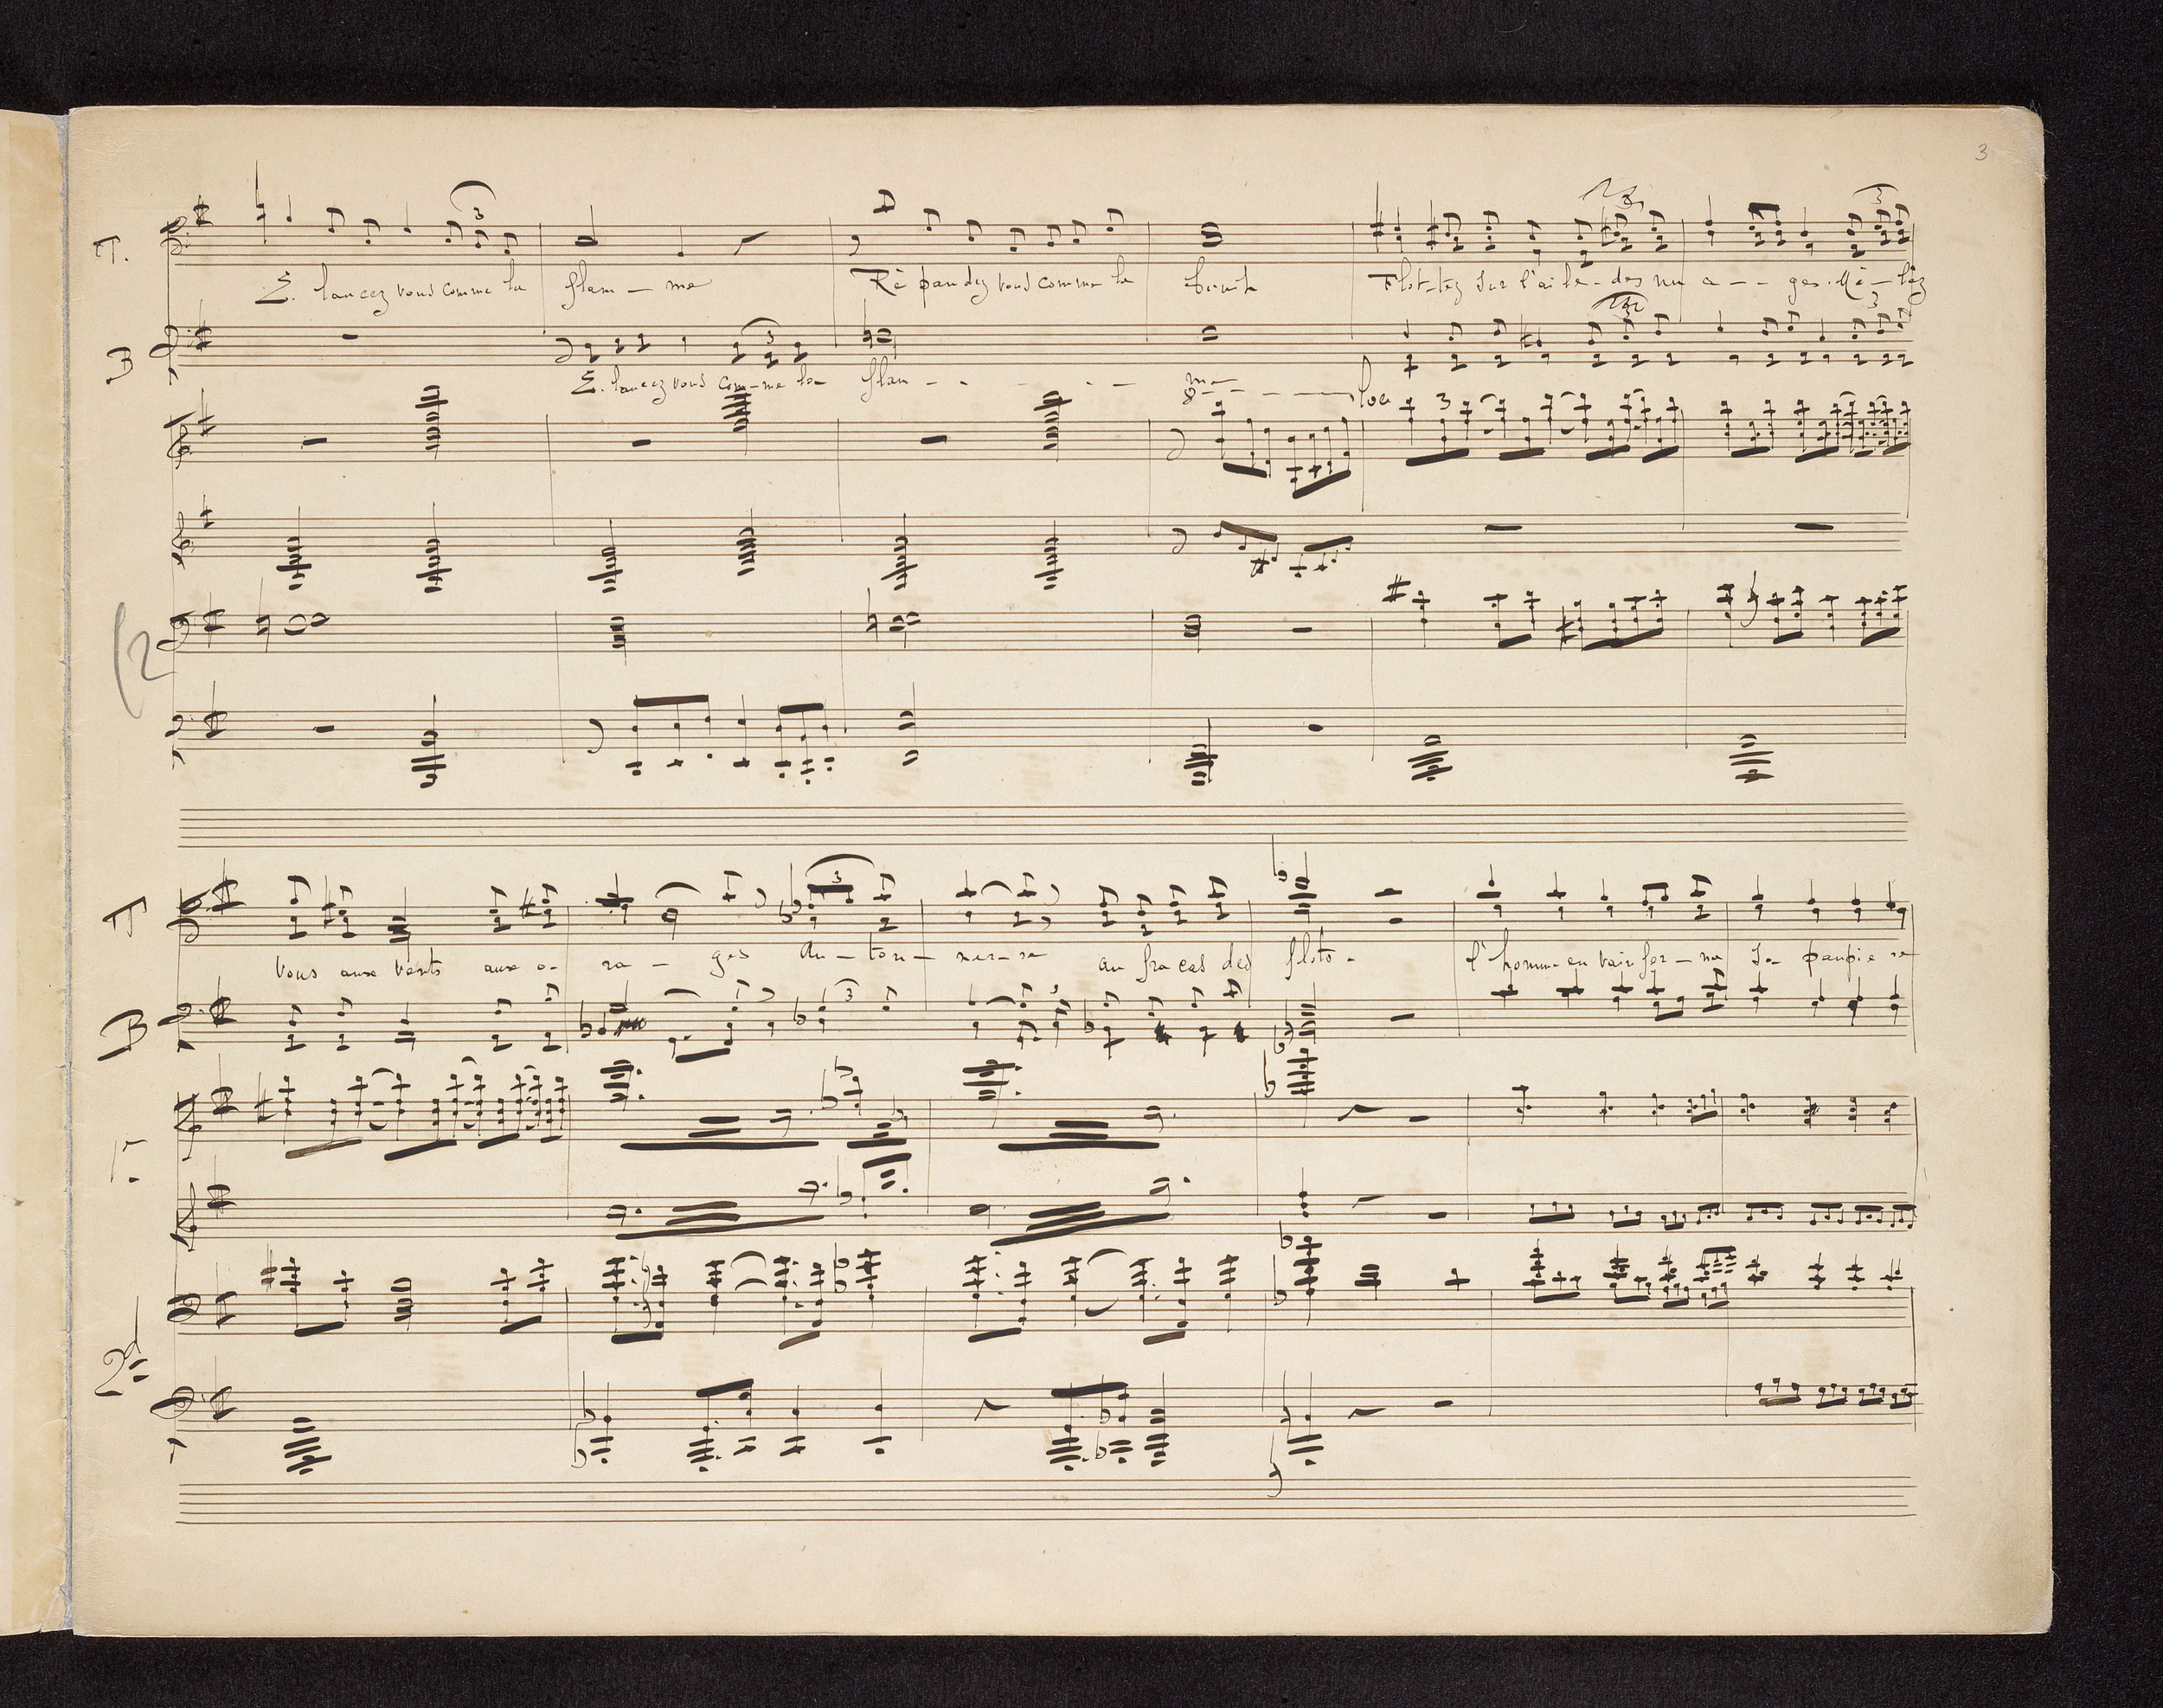 3
T.
3
E. lancez vous comme la flam - me Ré pandez vous comme le bruit Flot-tez sur l'ai le - des nu a - - ges. Mê - lez
B
3
E. lancez vous com-me la flam - - - - me
8 - - - - loco
3
(2
T
3
vous aux vents aux o- ra - ges Au - ton - ner-re au fracas des flots - l'homme en vain fer - me sa paupie re
B
3
2d